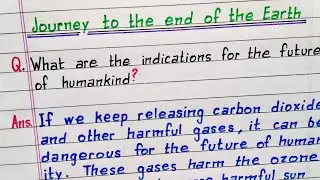 Journey to the end of the Earth
Q. What are the indications for the future
of humankind?
Ans. If we keep releasing carbon dioxide
and other harmful gases, it can be
dangerous for the future of human
ity. These gases harm the ozone
harmful sun